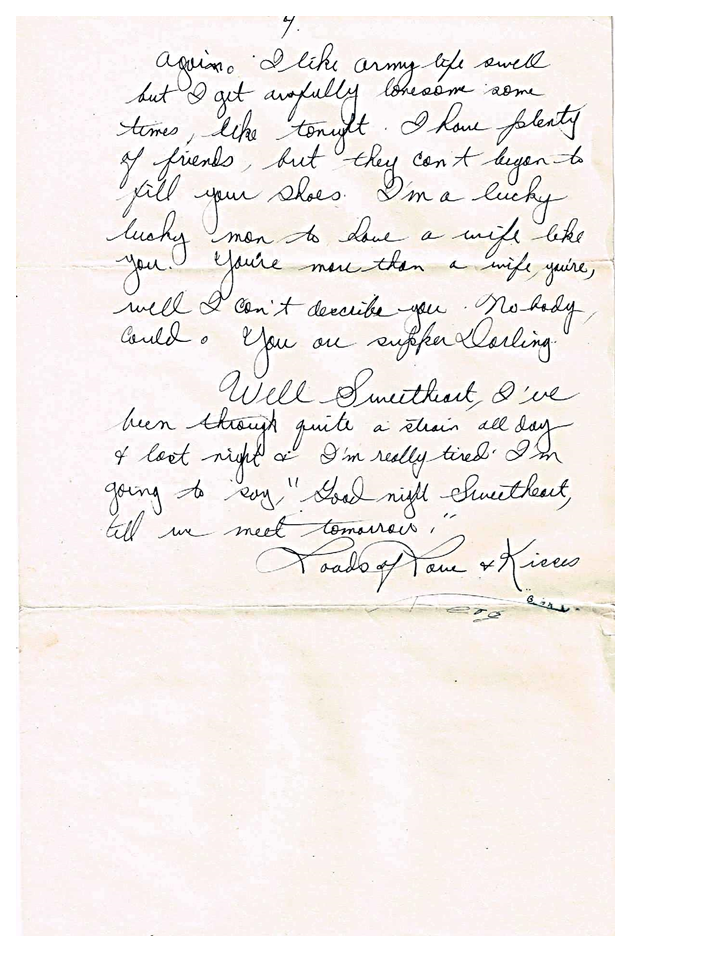 4.
again. I like army life swell
but I get awfully lonesome some
times, like tonight. I have plenty
of friends, but they can't began to
fill your shoes. I'm a lucky
lucky man to have a wife like
you. You're more than a wife, you're,
well I can't describe you. Nobody,
could. You are supper Darling.
Well Sweetheart, I've
been through quite a strain all day
& last night & I'm really tired. I'm
going to say, "Good night Sweetheart,
till we meet tomorrow."
Loads of Love & Kisses